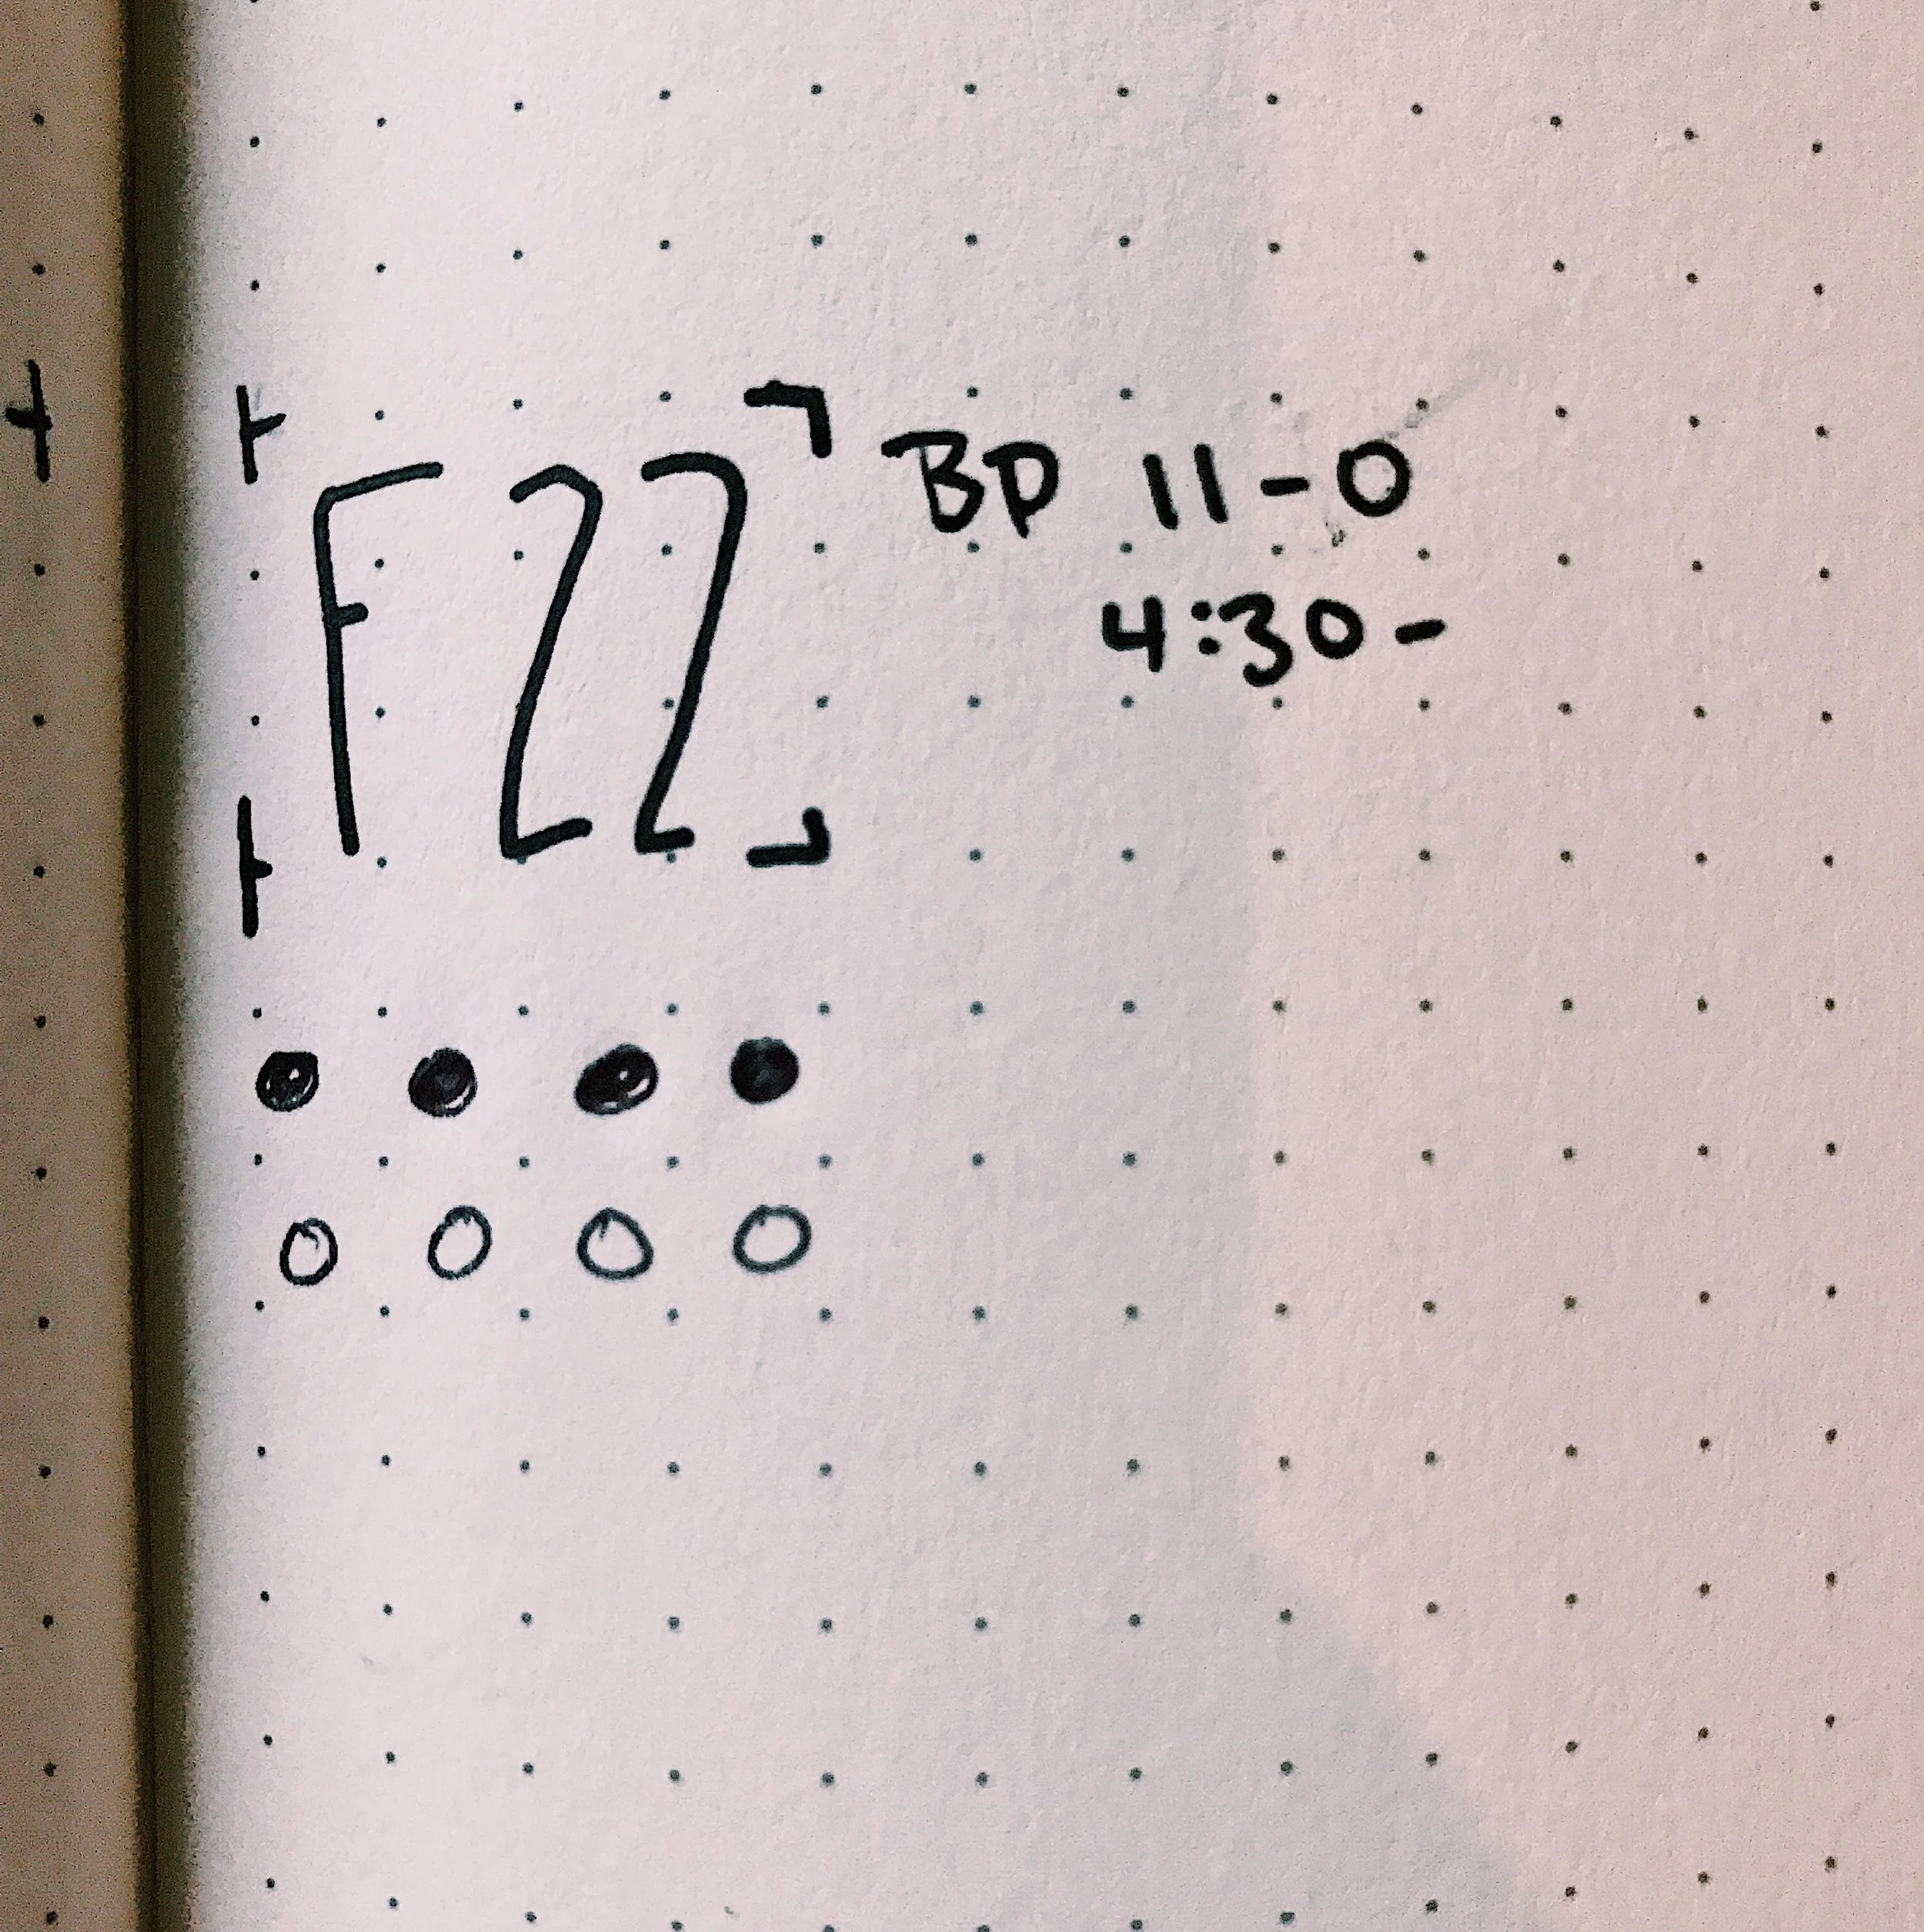 F22
BP 11-0
4:30-